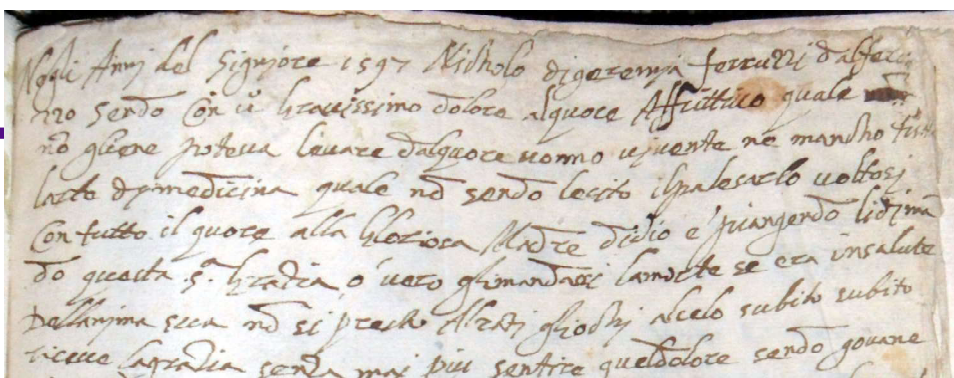 Negli Anni del Signiore 1597 Nicholo di geremia ferruzzi dal
no sendo Con ū Gravissimo dolore al quore Affrittivo quale
nō gliene poteva levare dal quore uomo vivente ne mancho tutta
larte di medicina quale nō sendo lecito il palesarlo voltosi
Con tutto il quore alla Gloriosa Madre didio e piangendo lidimā
dō questa s.ᵃ Gratia o vero glimandassi lamorte se era insalute
Dellanima sua nō si presto Alzati gliochi alcelo subito subito
riceve lagratia senza mai piu sentire queldolore sendo govane